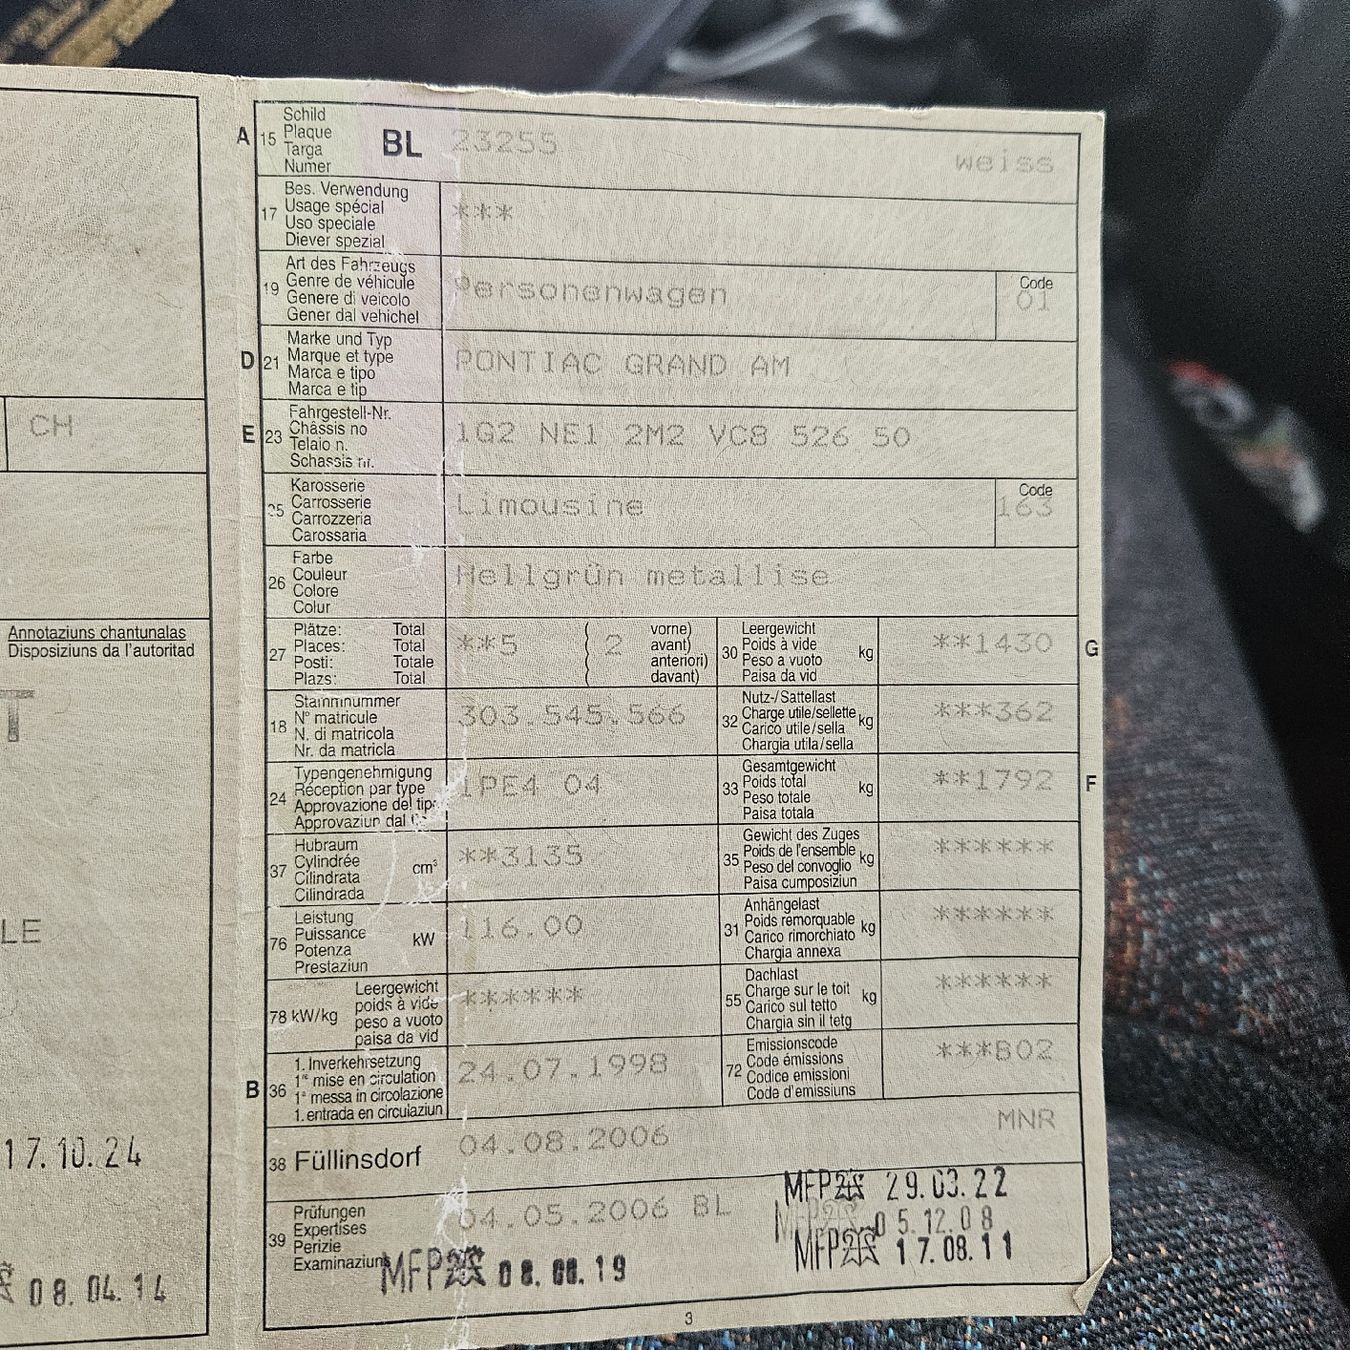 CH
Annotaziuns chantunalas
Disposiziuns da l'autoritad
T
LE
17.10.24
08.04.14
A 15 Schild
Plaque
Targa
Numer
BL 23255 weiss
17 Bes. Verwendung
Usage spécial
Uso speciale
Diever spezial
***
19 Art des Fahrzeugs
Genre de véhicule
Genere di veicolo
Gener dal vehichel
Personenwagen
Code
01
D 21 Marke und Typ
Marque et type
Marca e tipo
Marca e tip
PONTIAC GRAND AM
E 23 Fahrgestell-Nr.
Châssis no
Telaio n.
Schassis nr.
1G2 NE1 2M2 VC8 526 50
25 Karosserie
Carrosserie
Carrozzeria
Carossaria
Limousine
Code
163
26 Farbe
Couleur
Colore
Colur
Hellgrün metallise
27 Plätze: Total
Places: Total
Posti: Totale
Plazs: Total
**5 ( 2 vorne)
avant)
anteriori)
davant)
30 Leergewicht
Poids à vide
Peso a vuoto
Paisa da vid
kg
**1430 G
18 Stammnummer
N° matricule
N. di matricola
Nr. da matricla
303.545.566
32 Nutz-/Sattellast
Charge utile/sellette
Carico utile/sella
Chargia utila/sella
kg
***362
24 Typengenehmigung
Réception par type
Approvazione del tipo
Approvaziun dal
1PE4 04
33 Gesamtgewicht
Poids total
Peso totale
Paisa totala
kg
**1792 F
37 Hubraum
Cylindrée
Cilindrata
Cilindrada
cm³
**3135
35 Gewicht des Zuges
Poids de l'ensemble
Peso del convoglio
Paisa cumposiziun
kg
******
76 Leistung
Puissance
Potenza
Prestaziun
kW
116.00
31 Anhängelast
Poids remorquable
Carico rimorchiato
Chargia annexa
kg
******
78 kW/kg Leergewicht
poids à vide
peso a vuoto
paisa da vid
******
55 Dachlast
Charge sur le toit
Carico sul tetto
Chargia sin il tetg
kg
******
B 36 1. Inverkehrsetzung
1re mise en circulation
1a messa in circolazione
1. entrada en circulaziun
24.07.1998
72 Emissionscode
Code émissions
Codice emissioni
Code d'emissiuns
***B02
38 Füllinsdorf 04.08.2006 MNR
39 Prüfungen
Expertises
Perizie
Examinaziuns
04.05.2006 BL
MFP 29.03.22
MFP 05.12.08
MFP 17.08.11
MFP 08.08.19
3